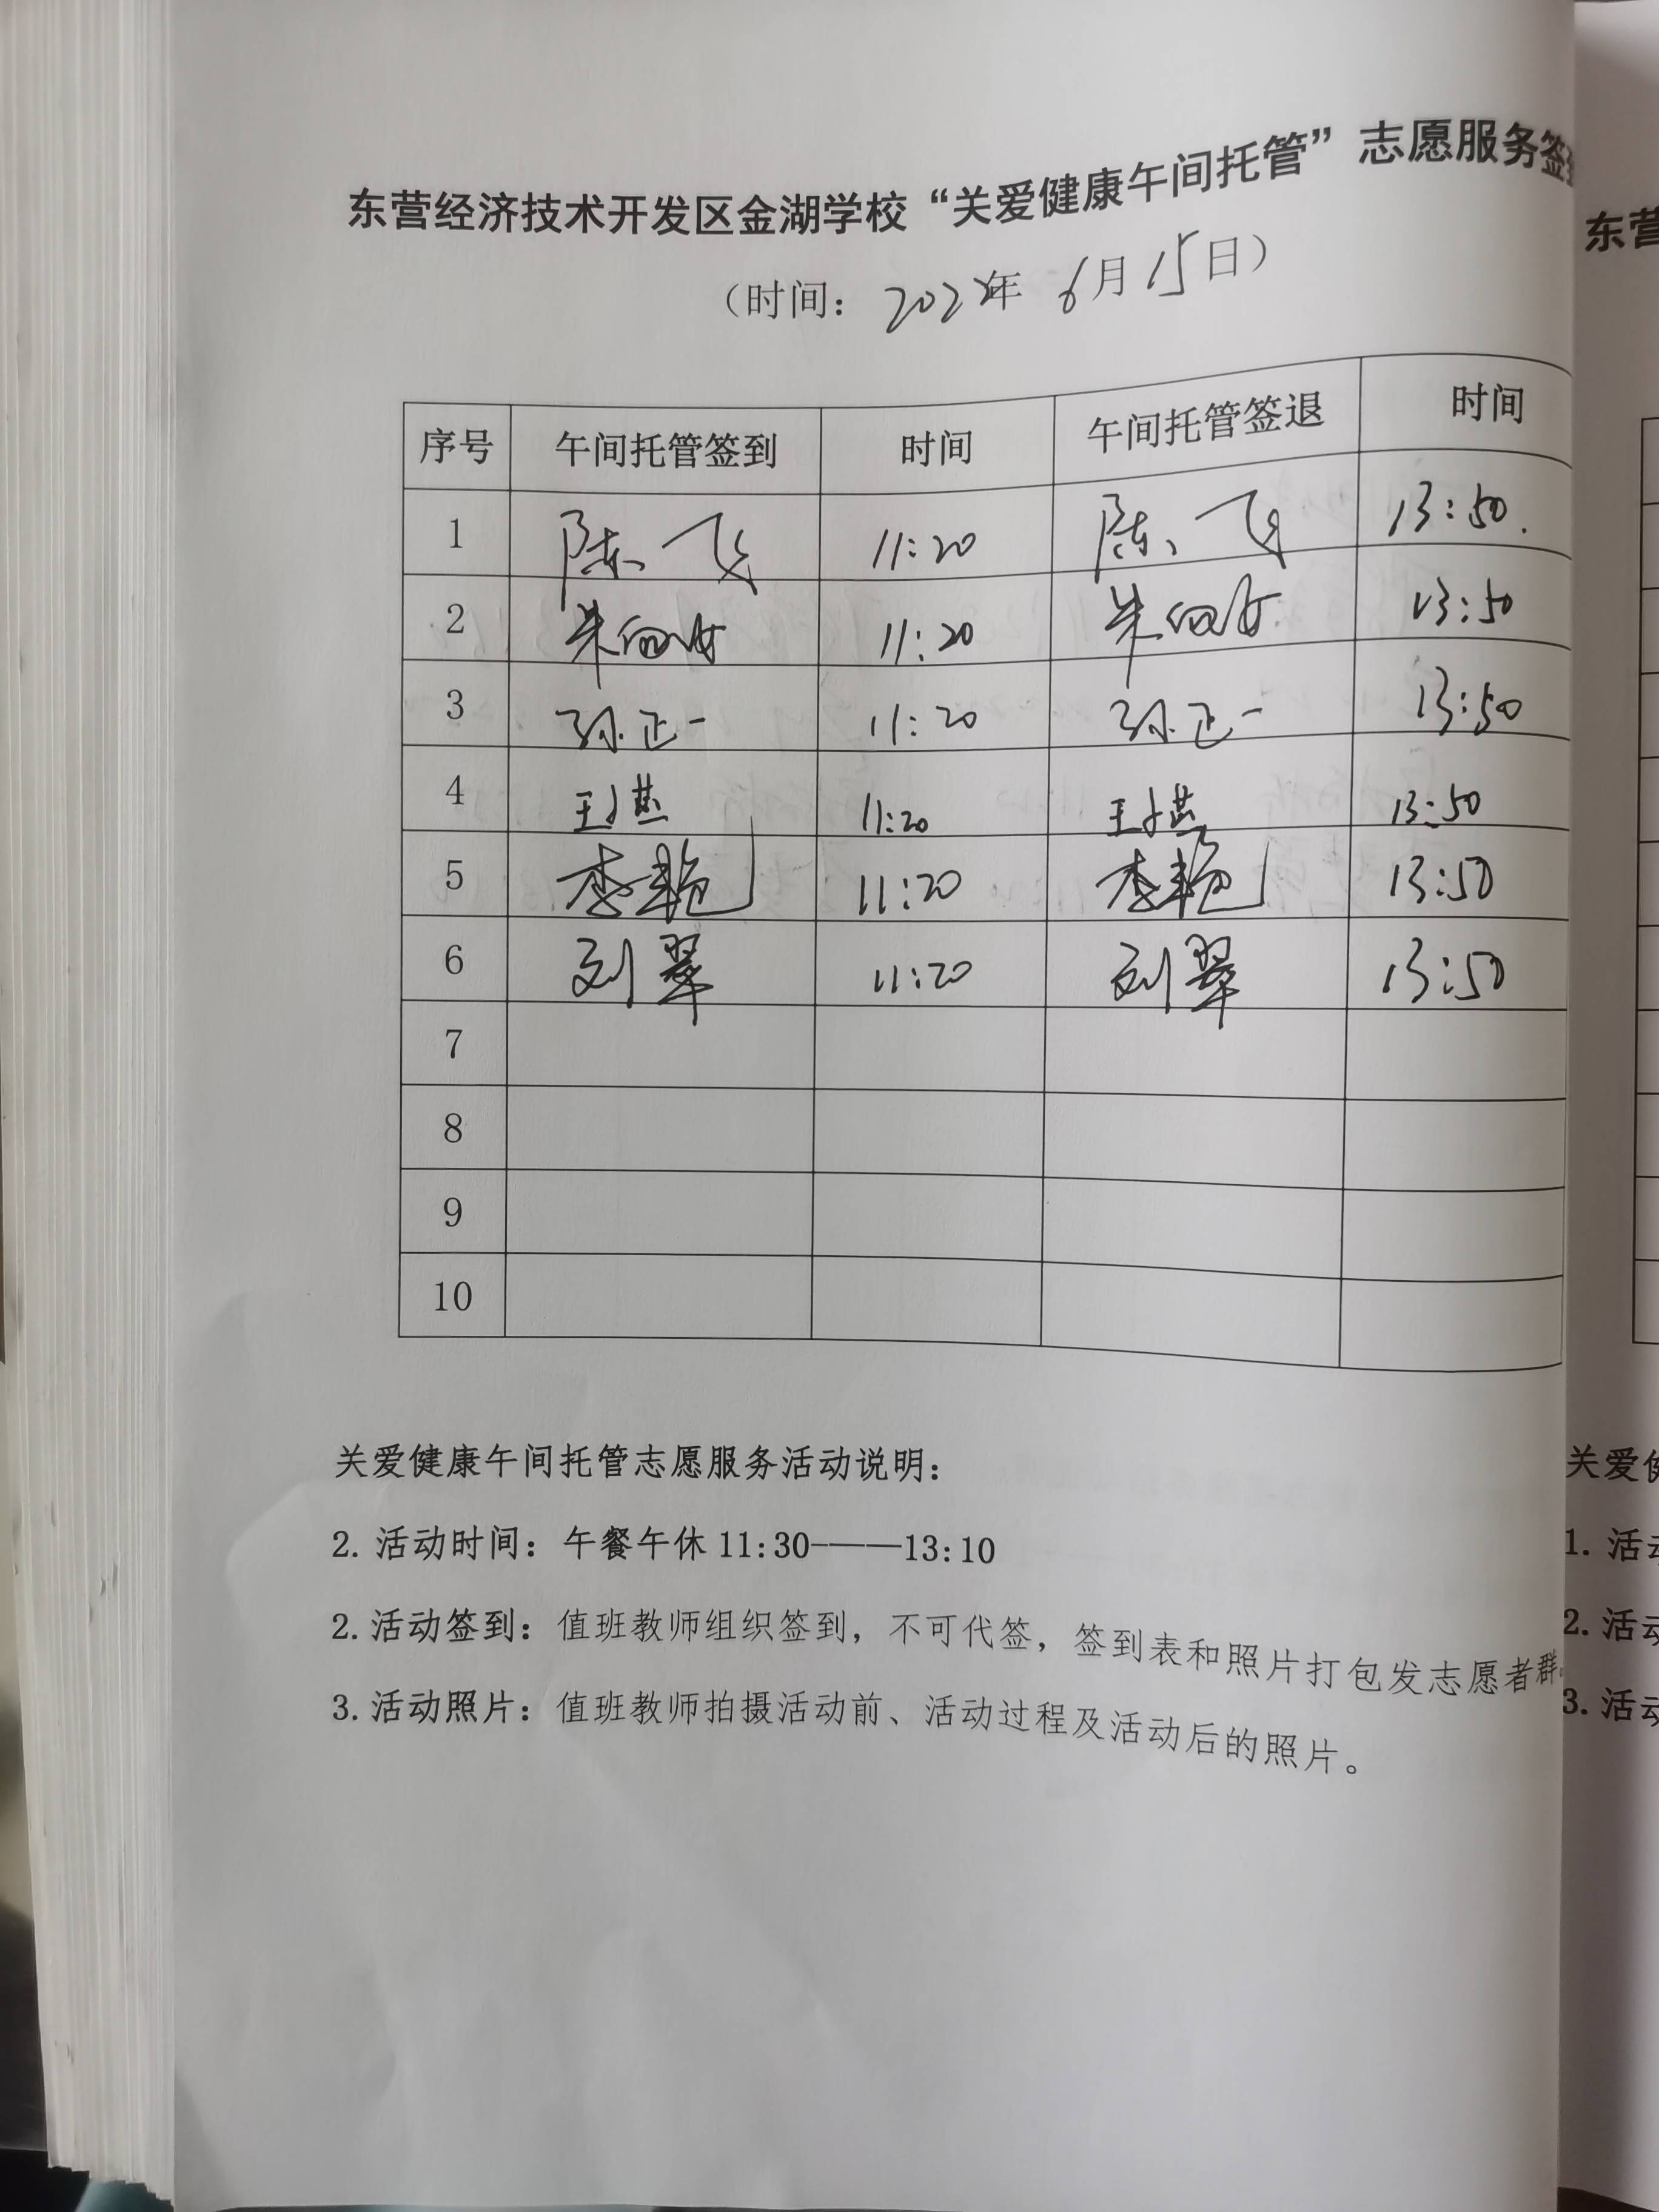 东营经济技术开发区金湖学校“关爱健康午间托管”志愿服务签
（时间：2022年 6月15日）
序号 午间托管签到 时间 午间托管签退 时间
1 陈飞 11:20 陈飞 13:50.
2 朱 11:20 朱 13:50
3 孙正一 11:20 孙正一 13:50
4 王燕 11:20 王燕 13:50
5 李艳 11:20 李艳 13:50
6 刘翠 11:20 刘翠 13:50
7
8
9
10
关爱健康午间托管志愿服务活动说明：
2. 活动时间：午餐午休 11:30-——13:10
2. 活动签到：值班教师组织签到，不可代签，签到表和照片打包发志愿者群。
3. 活动照片：值班教师拍摄活动前、活动过程及活动后的照片。
东营
关爱
1. 活
2. 活
3. 活